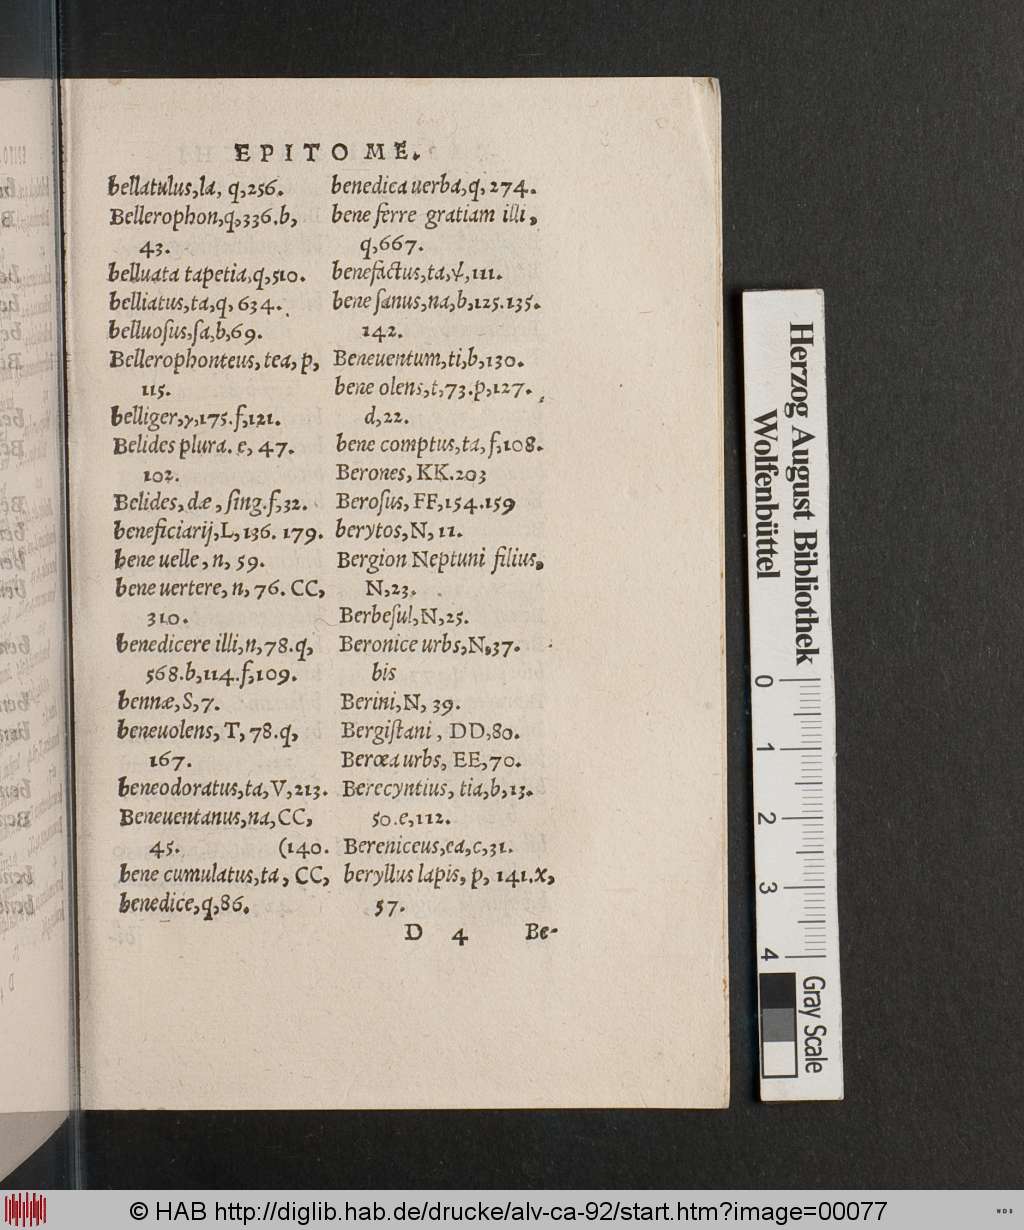 EPITOME.
bellatulus,la, q,256.
Bellerophon,q,336.b,
43.
belluata tapetia,q,510.
belliatus,ta,q, 634.
belluoſus,ſa,b,69.
Bellerophonteus, tea, p,
115.
belliger,γ,175.f,121.
Belides plura. e, 47.
102.
Belides, dæ, ſing.f,32.
beneficiarij,L,136. 179.
bene uelle, n, 59.
bene uertere, n, 76. CC,
310.
benedicere illi,n,78.q,
568.b,114.f,109.
bennæ, S, 7.
beneuolens, T, 78.q,
167.
beneodoratus,ta,V,213.
Beneuentanus,na,CC,
45. (140.
bene cumulatus,ta, CC,
benedice,q,86.
benedica uerba,q, 274.
bene ferre gratiam illi,
q,667.
benefactus,ta,ψ,111.
bene ſanus,na,b,125.135.
142.
Beneuentum,ti,b,130.
bene olens,t,73.p,127.
d,22.
bene comptus,ta, f,108.
Berones, KK.203
Beroſus, FF,154.159
berytos,N, 11.
Bergion Neptuni filius,
N,23.
Berbeſul,N,25.
Beronice urbs,N,37.
bis
Berini,N, 39.
Bergiſtani, DD,80.
Berœa urbs, EE,70.
Berecyntius, tia,b,13.
50.e,112.
Bereniceus,ea,c,31.
beryllus lapis, p, 141.x,
57.
D 4 Be-
Herzog August Bibliothek
Wolfenbüttel
0 1 2 3 4
Gray Scale
© HAB http://diglib.hab.de/drucke/alv-ca-92/start.htm?image=00077